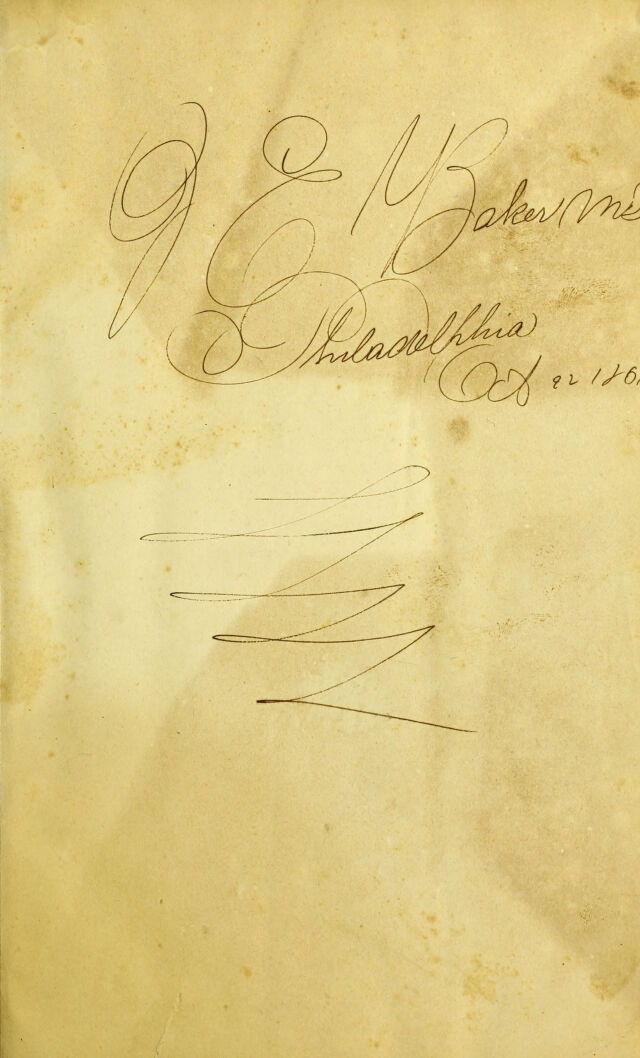 J E Baker, M
Philadelphia
Oct 22 186